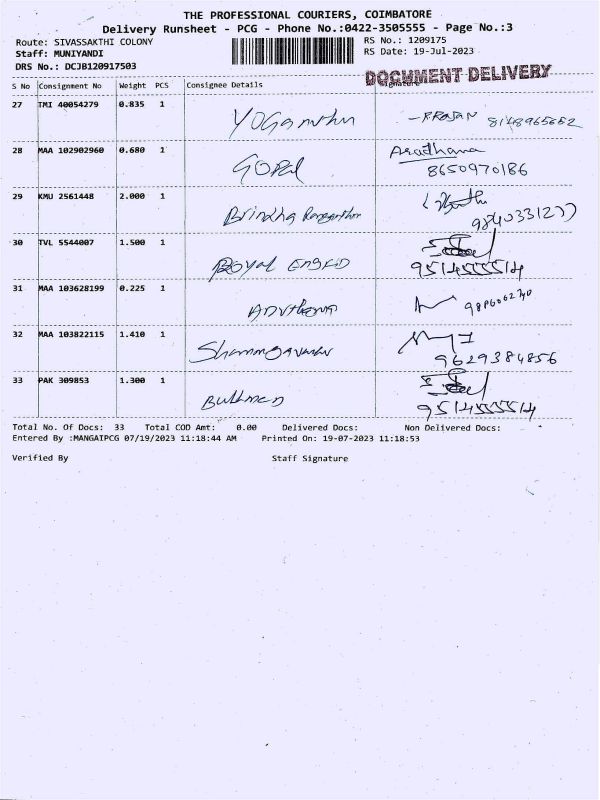 THE PROFESSIONAL COURIERS, COIMBATORE
Delivery Runsheet - PCG - Phone No.:0422-3505555 - Page No.:3
Route: SIVASSAKTHI COLONY
Staff: MUNIYANDI
DRS No.: DCJB120917503
RS No.: 1209175
RS Date: 19-Jul-2023
DOCUMENT DELIVERY
S No Consignment No Weight PCS Consignee Details Signature
27 TMI 40054279 0.835 1 8148965652
28 MAA 102902960 0.680 1 GOPAL Aradhana
8650970186
29 KMU 2561448 2.000 1 Brindha
30 TVL 5544007 1.500 1 Royal
31 MAA 103628199 0.225 1
32 MAA 103822115 1.410 1
9629384856
33 PAK 309853 1.300 1
Total No. Of Docs: 33 Total COD Amt: 0.00 Delivered Docs: Non Delivered Docs:
Entered By :MANGAIPCG 07/19/2023 11:18:44 AM Printed On: 19-07-2023 11:18:53
Verified By Staff Signature